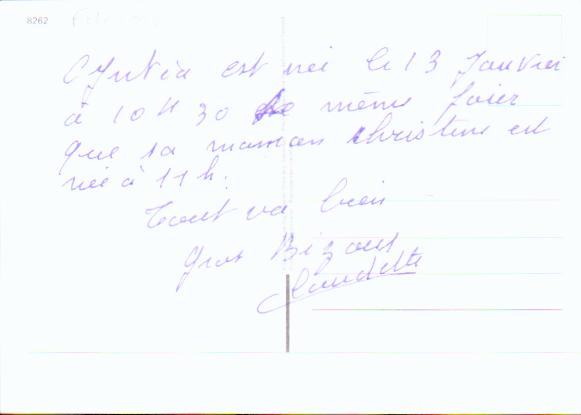 8262
Cyntia est née le 13 Janvier
à 10 H 30 le même jour
que sa maman christine est
née à 11 h.
Tout va bien
Gros Bizous
Claudette